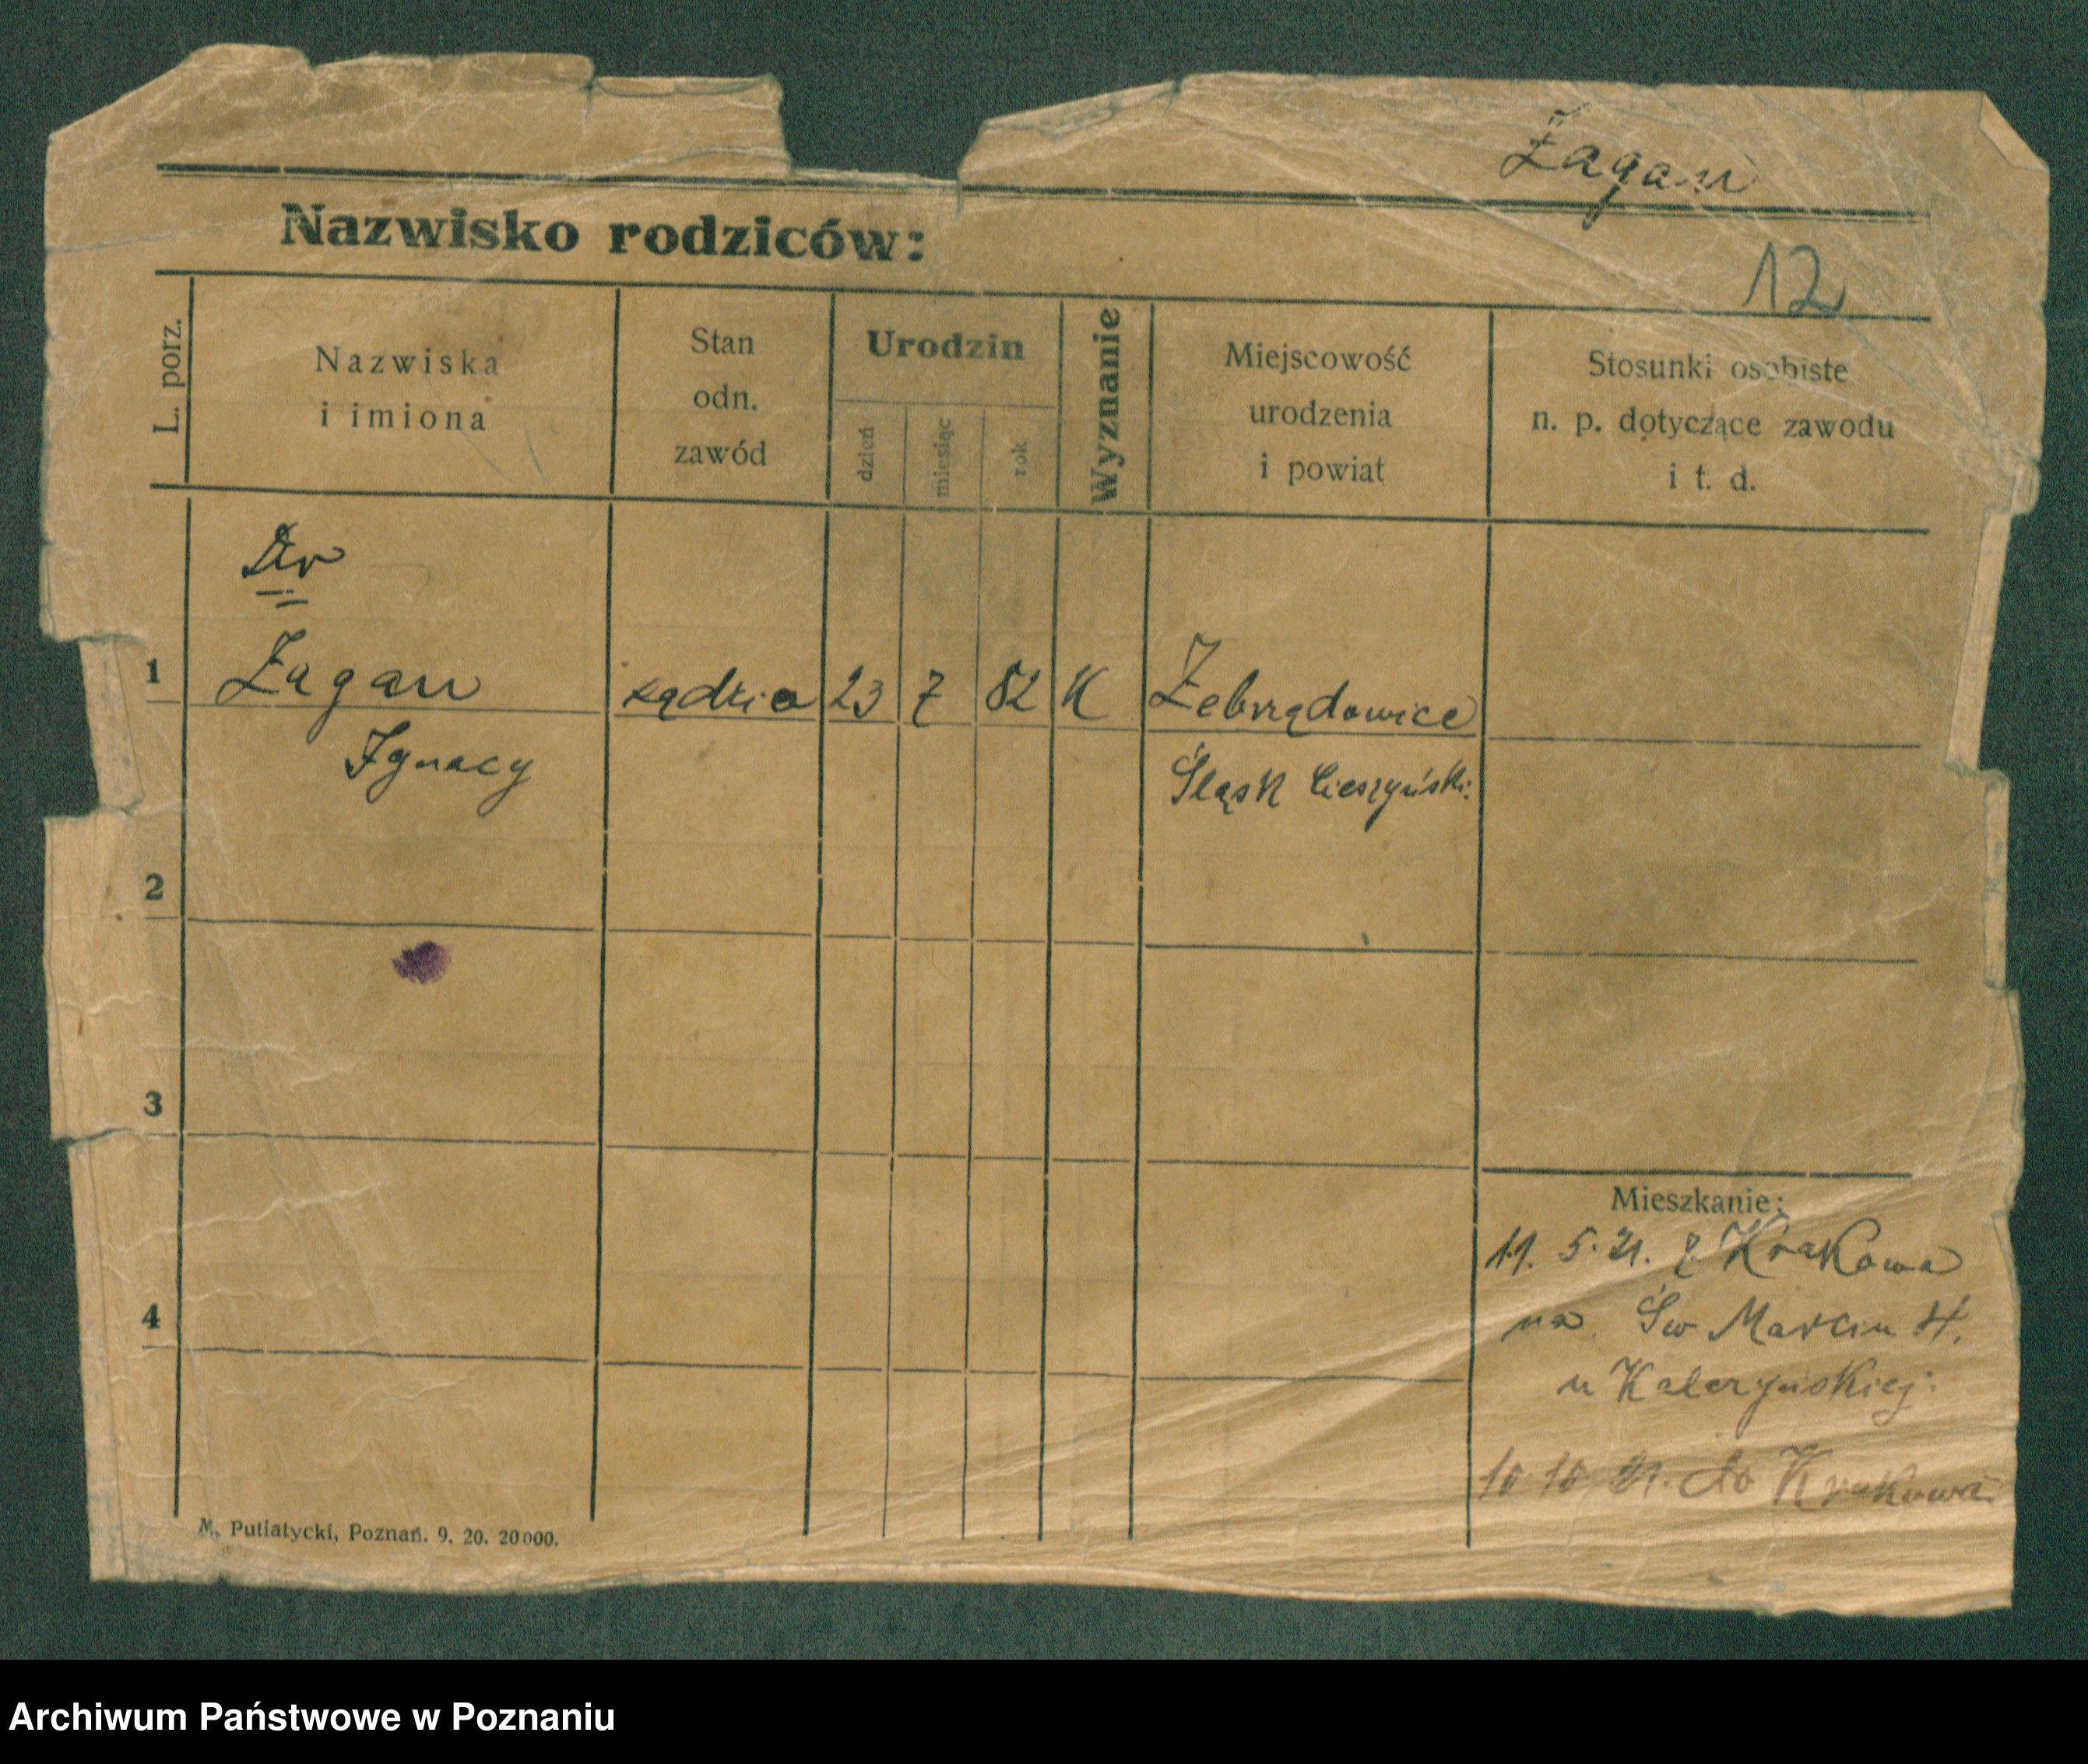 Żagan
Nazwisko rodziców:
12
L. porz.
Nazwiska
i imiona
Stan
odn.
zawód
Urodzin
dzień
miesiąc
rok
Wyznanie
Miejscowość
urodzenia
i powiat
Stosunki osobiste
n. p. dotyczące zawodu
i t. d.
Dr
1 Żagan sędzia 23 7 82 K Zebrzydowice
Ignacy Śląsk Cieszyński
2
3
Mieszkanie:
11. 5. 21. z Krakowa
na Św Marcin
u
4
10 10 21. do Krakowa
M. Putiatycki, Poznań. 9. 20. 20000.
Archiwum Państwowe w Poznaniu